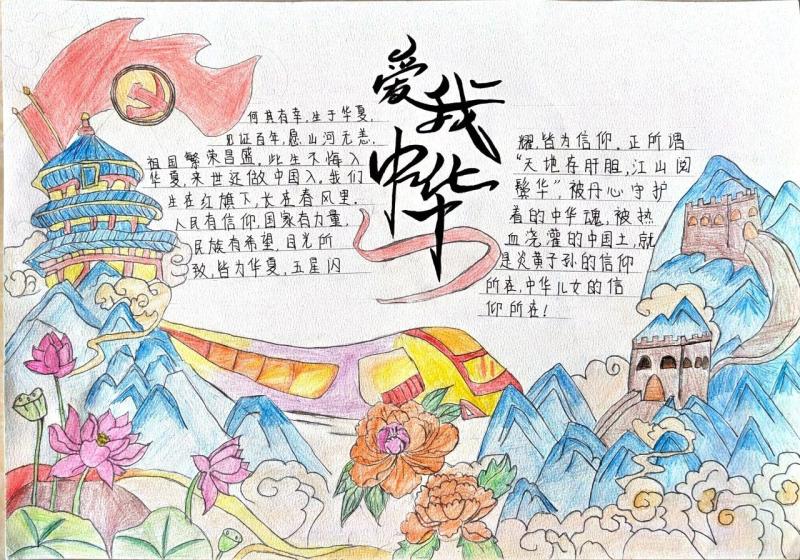 爱我中华
何其有幸,生于华夏,
见证百年,愿山河无恙,
祖国繁荣昌盛,此生不悔入
华夏,来世还做中国人,我们
生在红旗下,长在春风里,
人民有信仰,国家有力量,
民族有希望,目光所
致,皆为华夏,五星闪
耀,皆为信仰。正所谓
“天地存肝胆,江山阅
鬓华”,被丹心守护
着的中华魂,被热
血浇灌的中国土,就
是炎黄子孙的信仰
所在,中华儿女的信
仰所在!